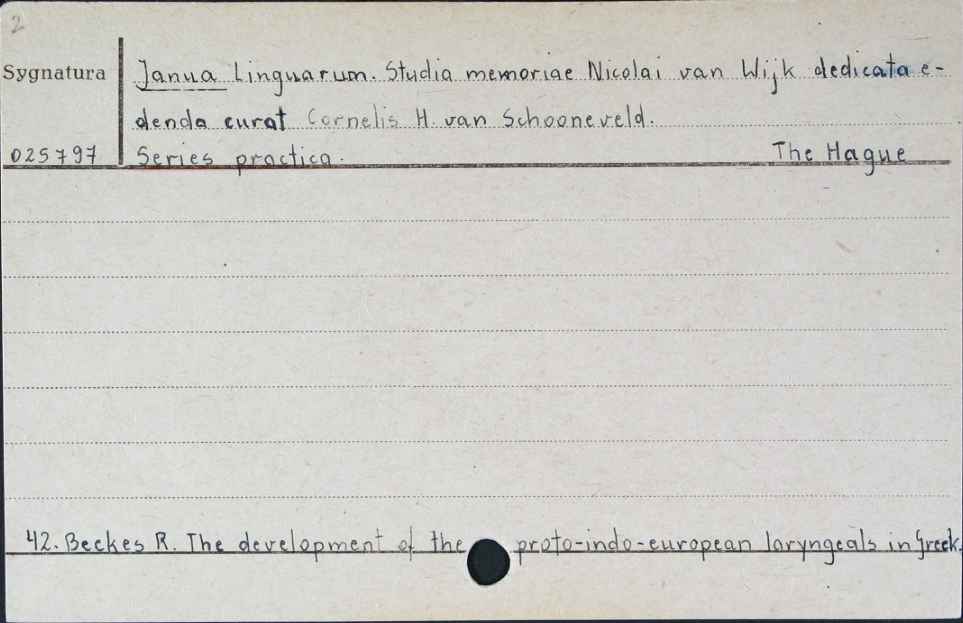 2
Sygnatura
Janua Linguarum. Studia memoriae Nicolai van Wijk dedicata e-
denda curat Cornelis H. van Schooneveld.
025797
Series practica. The Hague
42. Beekes R. The development of the proto-indo-european laryngeals in Greek.